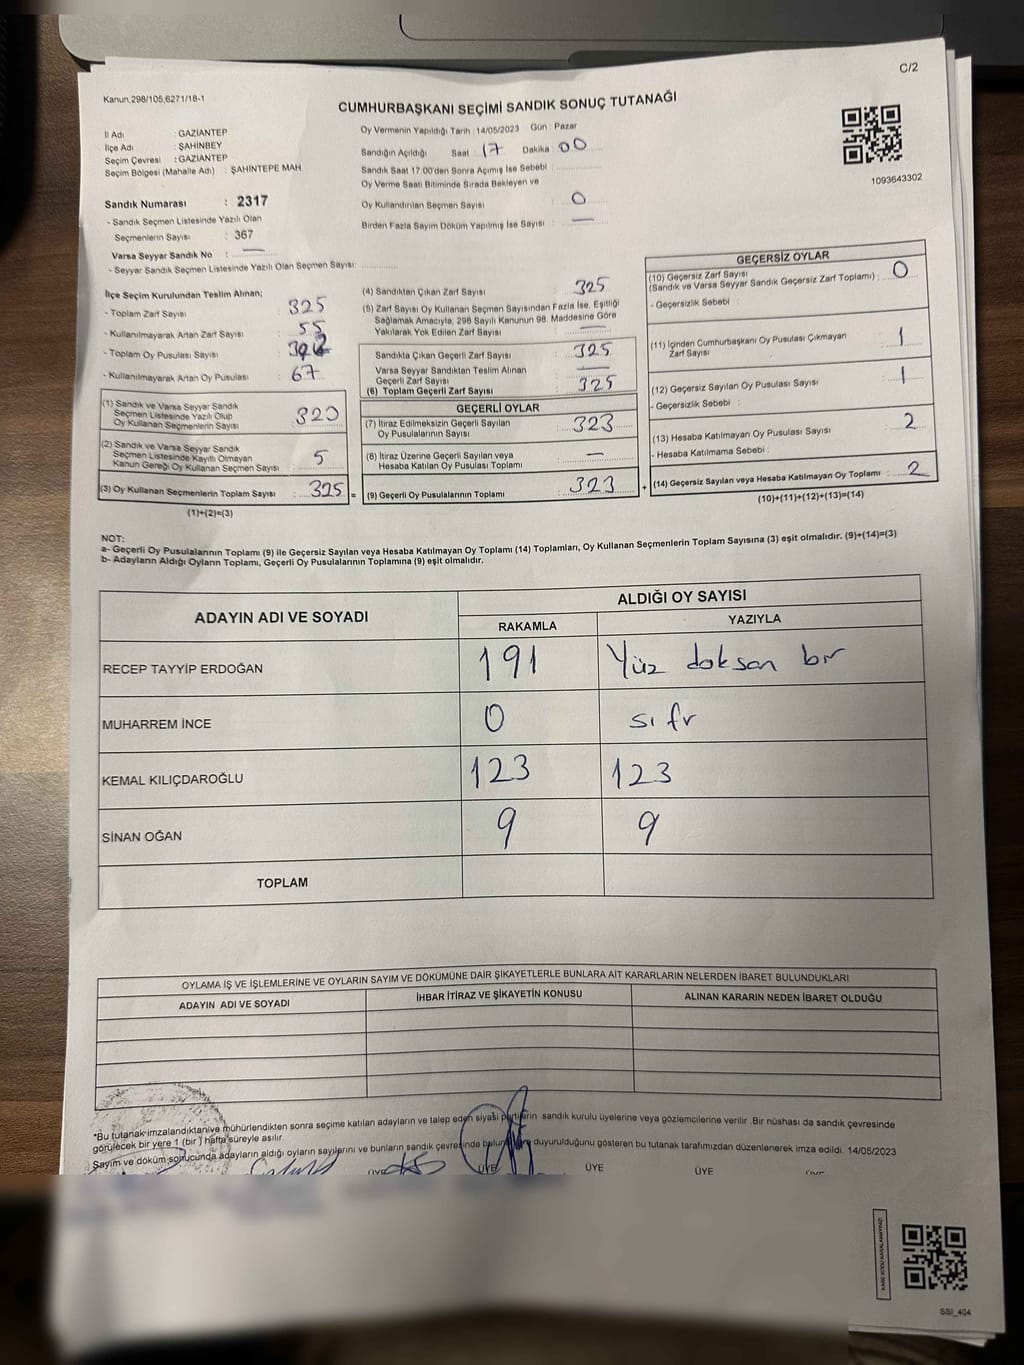 C/2
Kanun,298/105,6271/18-1
CUMHURBAŞKANI SEÇİMİ SANDIK SONUÇ TUTANAĞI
İl Adı : GAZİANTEP
İlçe Adı : ŞAHİNBEY
Seçim Çevresi : GAZİANTEP
Seçim Bölgesi (Mahalle Adı) : ŞAHİNTEPE MAH
Sandık Numarası : 2317
- Sandık Seçmen Listesinde Yazılı Olan
Seçmenlerin Sayısı : 367
Varsa Seyyar Sandık No : —
- Seyyar Sandık Seçmen Listesinde Yazılı Olan Seçmen Sayısı:
Oy Vermenin Yapıldığı Tarih : 14/05/2023 Gün : Pazar
Sandığın Açıldığı Saat : 17 Dakika : 00
Sandık Saat 17:00'den Sonra Açımış İse Sebebi :
Oy Verme Saati Bitiminde Sırada Bekleyen ve
Oy Kullandırılan Seçmen Sayısı : 0
Birden Fazla Sayım Döküm Yapılmış İse Sayısı : —
1093643302
İlçe Seçim Kurulundan Teslim Alınan:
- Toplam Zarf Sayısı : 325
- Kullanılmayarak Artan Zarf Sayısı : 55
- Toplam Oy Pusulası Sayısı :
- Kullanılmayarak Artan Oy Pusulası : 67
(1) Sandık ve Varsa Seyyar Sandık
Seçmen Listesinde Yazılı Olup
Oy Kullanan Seçmenlerin Sayısı : 320
(2) Sandık ve Varsa Seyyar Sandık
Seçmen Listesinde Kayıtlı Olmayan
Kanun Gereği Oy Kullanan Seçmen Sayısı : 5
(3) Oy Kullanan Seçmenlerin Toplam Sayısı : 325 =
(1)+(2)=(3)
(4) Sandıktan Çıkan Zarf Sayısı : 325
(5) Zarf Sayısı Oy Kullanan Seçmen Sayısından Fazla İse, Eşitliği
Sağlamak Amacıyla, 298 Sayılı Kanunun 98. Maddesine Göre
Yakılarak Yok Edilen Zarf Sayısı : —
Sandıkta Çıkan Geçerli Zarf Sayısı : 325
Varsa Seyyar Sandıktan Teslim Alınan
Geçerli Zarf Sayısı : —
(6) Toplam Geçerli Zarf Sayısı : 325
GEÇERLİ OYLAR
(7) İtiraz Edilmeksizin Geçerli Sayılan
Oy Pusulalarının Sayısı : 323
(8) İtiraz Üzerine Geçerli Sayılan veya
Hesaba Katılan Oy Pusulası Toplamı : —
(9) Geçerli Oy Pusulalarının Toplamı : 323 +
GEÇERSİZ OYLAR
(10) Geçersiz Zarf Sayısı
(Sandık ve Varsa Seyyar Sandık Geçersiz Zarf Toplamı) : 0
- Geçersizlik Sebebi :
(11) İçinden Cumhurbaşkanı Oy Pusulası Çıkmayan
Zarf Sayısı : 1
(12) Geçersiz Sayılan Oy Pusulası Sayısı : 1
- Geçersizlik Sebebi :
(13) Hesaba Katılmayan Oy Pusulası Sayısı : 2
- Hesaba Katılmama Sebebi :
(14) Geçersiz Sayılan veya Hesaba Katılmayan Oy Toplamı : 2
(10)+(11)+(12)+(13)=(14)
NOT:
a- Geçerli Oy Pusulalarının Toplamı (9) ile Geçersiz Sayılan veya Hesaba Katılmayan Oy Toplamı (14) Toplamları, Oy Kullanan Seçmenlerin Toplam Sayısına (3) eşit olmalıdır. (9)+(14)=(3)
b- Adayların Aldığı Oyların Toplamı, Geçerli Oy Pusulalarının Toplamına (9) eşit olmalıdır.
ADAYIN ADI VE SOYADI
ALDIĞI OY SAYISI
RAKAMLA YAZIYLA
RECEP TAYYİP ERDOĞAN 191 Yüz doksan bir
MUHARREM İNCE 0 sıfr
KEMAL KILIÇDAROĞLU 123 123
SİNAN OĞAN 9 9
TOPLAM
OYLAMA İŞ VE İŞLEMLERİNE VE OYLARIN SAYIM VE DÖKÜMÜNE DAİR ŞİKAYETLERLE BUNLARA AİT KARARLARIN NELERDEN İBARET BULUNDUKLARI
ADAYIN ADI VE SOYADI İHBAR İTİRAZ VE ŞİKAYETİN KONUSU ALINAN KARARIN NEDEN İBARET OLDUĞU
*Bu tutanak imzalandıktan ve mühürlendikten sonra seçime katılan adayların ve talep eden siyasi partilerin sandık kurulu üyelerine veya gözlemcilerine verilir. Bir nüshası da sandık çevresinde
görülecek bir yere 1 (bir ) hafta süreyle asılır.
Sayım ve döküm sonucunda adayların aldığı oyların sayılarını ve bunların sandık çevresinde duyurulduğunu gösteren bu tutanak tarafımızdan düzenlenerek imza edildi. 14/05/2023
ÜYE ÜYE ÜYE ÜYE ÜYE
SSI_404